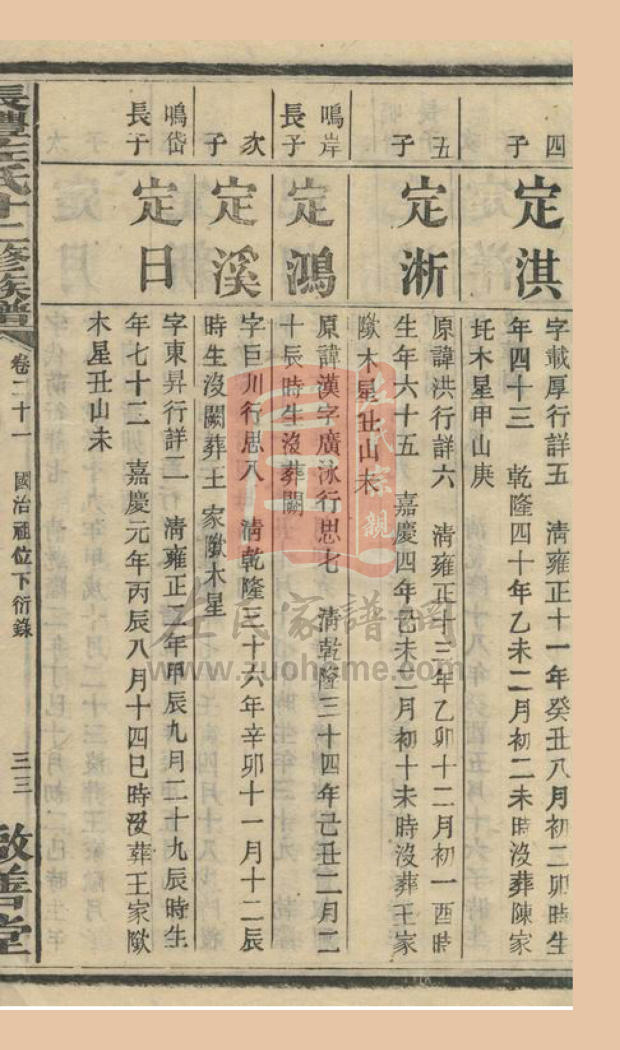 四子
定淇
字載厚行詳五 清雍正十一年癸丑八月初二卯時生
年四十三 乾隆四十年乙未二月初二未時沒葬陳家
圫木星甲山庚
五子
定淅
原諱洪行詳六 清雍正十三年乙卯十二月初一酉時
生年六十五 嘉慶四年己未二月初十未時沒葬王家
歟木星丑山未
鳴岸長子
定鴻
原諱漢字廣泳行思七 清乾隆三十四年己丑二月二
十辰時生沒葬闕
次子
定溪
字巨川行思八 清乾隆三十六年辛卯十一月十二辰
時生沒闕葬王家歟木星
鳴岱長子
定日
字東昇行詳二 清雍正二年甲辰九月二十九辰時生
年七十三 嘉慶元年丙辰八月十四巳時沒葬王家歟
木星丑山未
長澧左氏十二修族譜
卷二十一 國治祖位下衍錄 三三
敬善堂
左氏宗親
左氏家譜網
www.zuohome.com